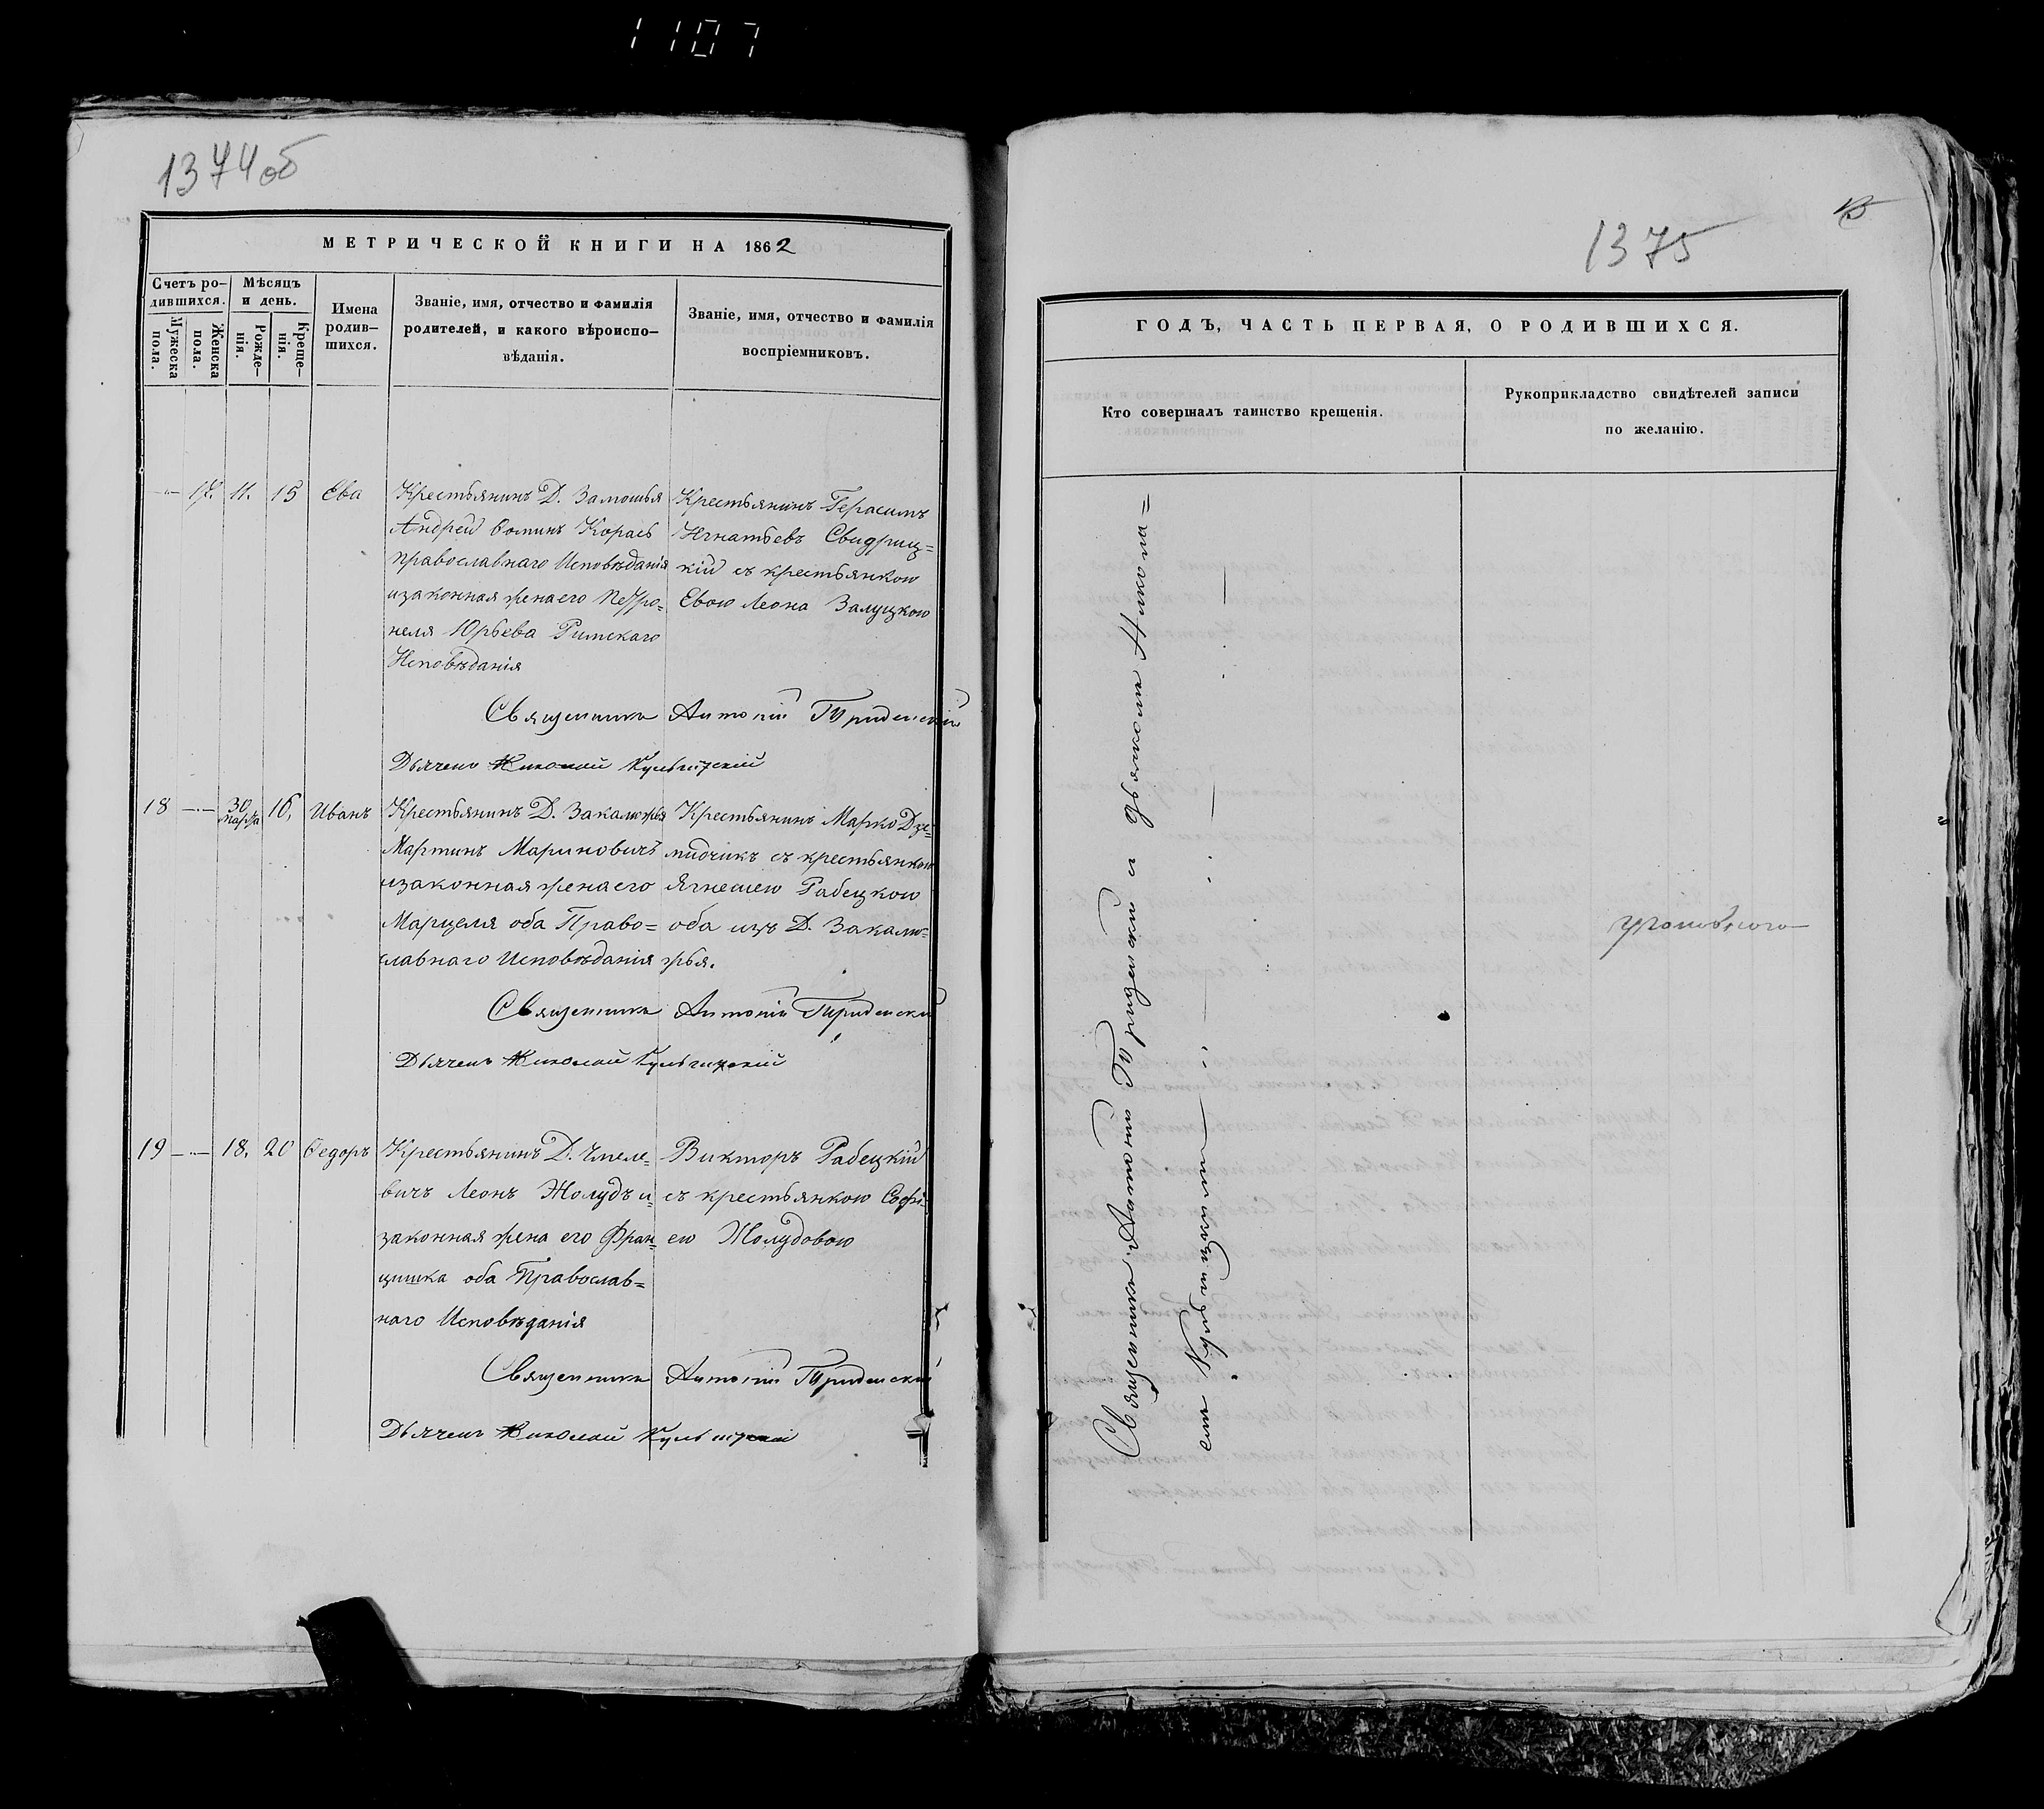 1107
1374об
МЕТРИЧЕСКОЙ КНИГИ НА 1862
Счетъ ро-
дившихся.
Мѣсяцъ
и день.
Мужеска
пола.
Женска
пола.
Рожде-
нія.
Креще-
нія.
Имена
родив-
шихся.
Званіе, имя, отчество и фамилія
родителей, и какого вѣроиспо-
вѣданія.
Званіе, имя, отчество и фамилія
воспріемниковъ.
17. 11. 15 Ева
Крестьянинъ Д. Замошья
Андрей Ѳоминъ Корась
православнаго Исповѣданія
изаконная женаего Петро-
неля Юрьева Римскаго
Исповѣданія
Крестьянинъ Герасимъ
Игнатьевъ Свидриц=
кій съ крестьянкою
Евою Леона Залуцкою
Священникъ Антоній
Дьячекъ Николай
18 30 марта 16. Иванъ
Крестьянинъ Д. Закалюжья
Мартинъ Мариновичъ
изаконная женаего
Марцеля оба Право=
славнаго Исповѣданія
Крестьянинъ Марко Дзе-
мидчикъ съ крестьянкою
Ягнешею Рабецкою
оба изъ Д. Закалю-
жья.
Священникъ Антоній
Дьячекъ Николай
19 18. 20 Ѳедоръ
Крестьянинъ Д.
вичъ Леонъ Жолудъ и-
законная жена его Фран-
цишка оба Православ=
наго Исповѣданія
Викторъ Рабецкій
съ крестьянкою Софі-
ею Жолудовою
Священникъ Антоній
Дьячекъ Николай
1375
ГОДЪ, ЧАСТЬ ПЕРВАЯ, О РОДИВШИХСЯ.
Кто совершалъ таинство крещенія.
Рукоприкладство свидѣтелей записи
по желанію.
Священникъ Антоній и дьякомъ Никола=
емъ